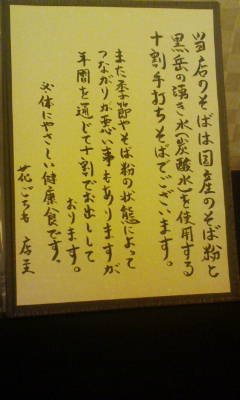 当店のそばは国産のそば粉と
黒岳の湧き水(炭酸水)を使用する
十割手打ちそばでございます。
また季節やそば粉の状態によって
つながりが悪い事もありますが
年間を通じて十割でお出しして
おります。
体にやさしい健康食です。
店主